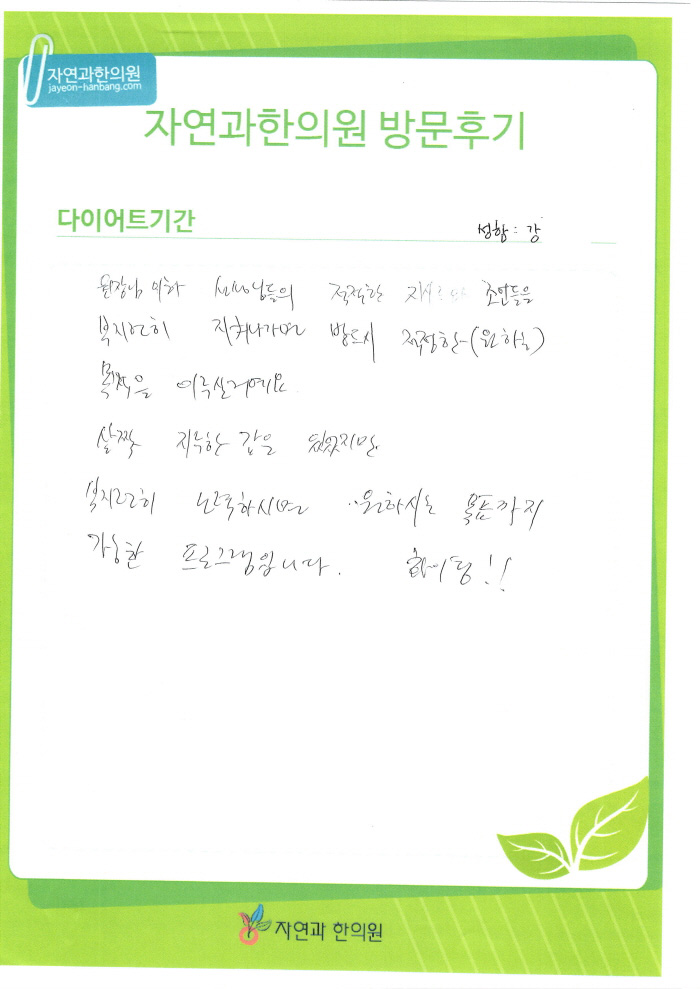 자연과한의원
jayeon-hanbang.com
자연과한의원 방문후기
다이어트기간
성함 : 강
원장님 이하 선생님들의 적절한 조언들을
부지런히 지켜나가면 반드시 적정한 (원하는)
목적을 이루실거예요
살짝 지루한 감은 있었지만
부지런히 노력하시면 원하시는 목표까지
가능한 프로그램입니다. 화이팅!!
자연과 한의원